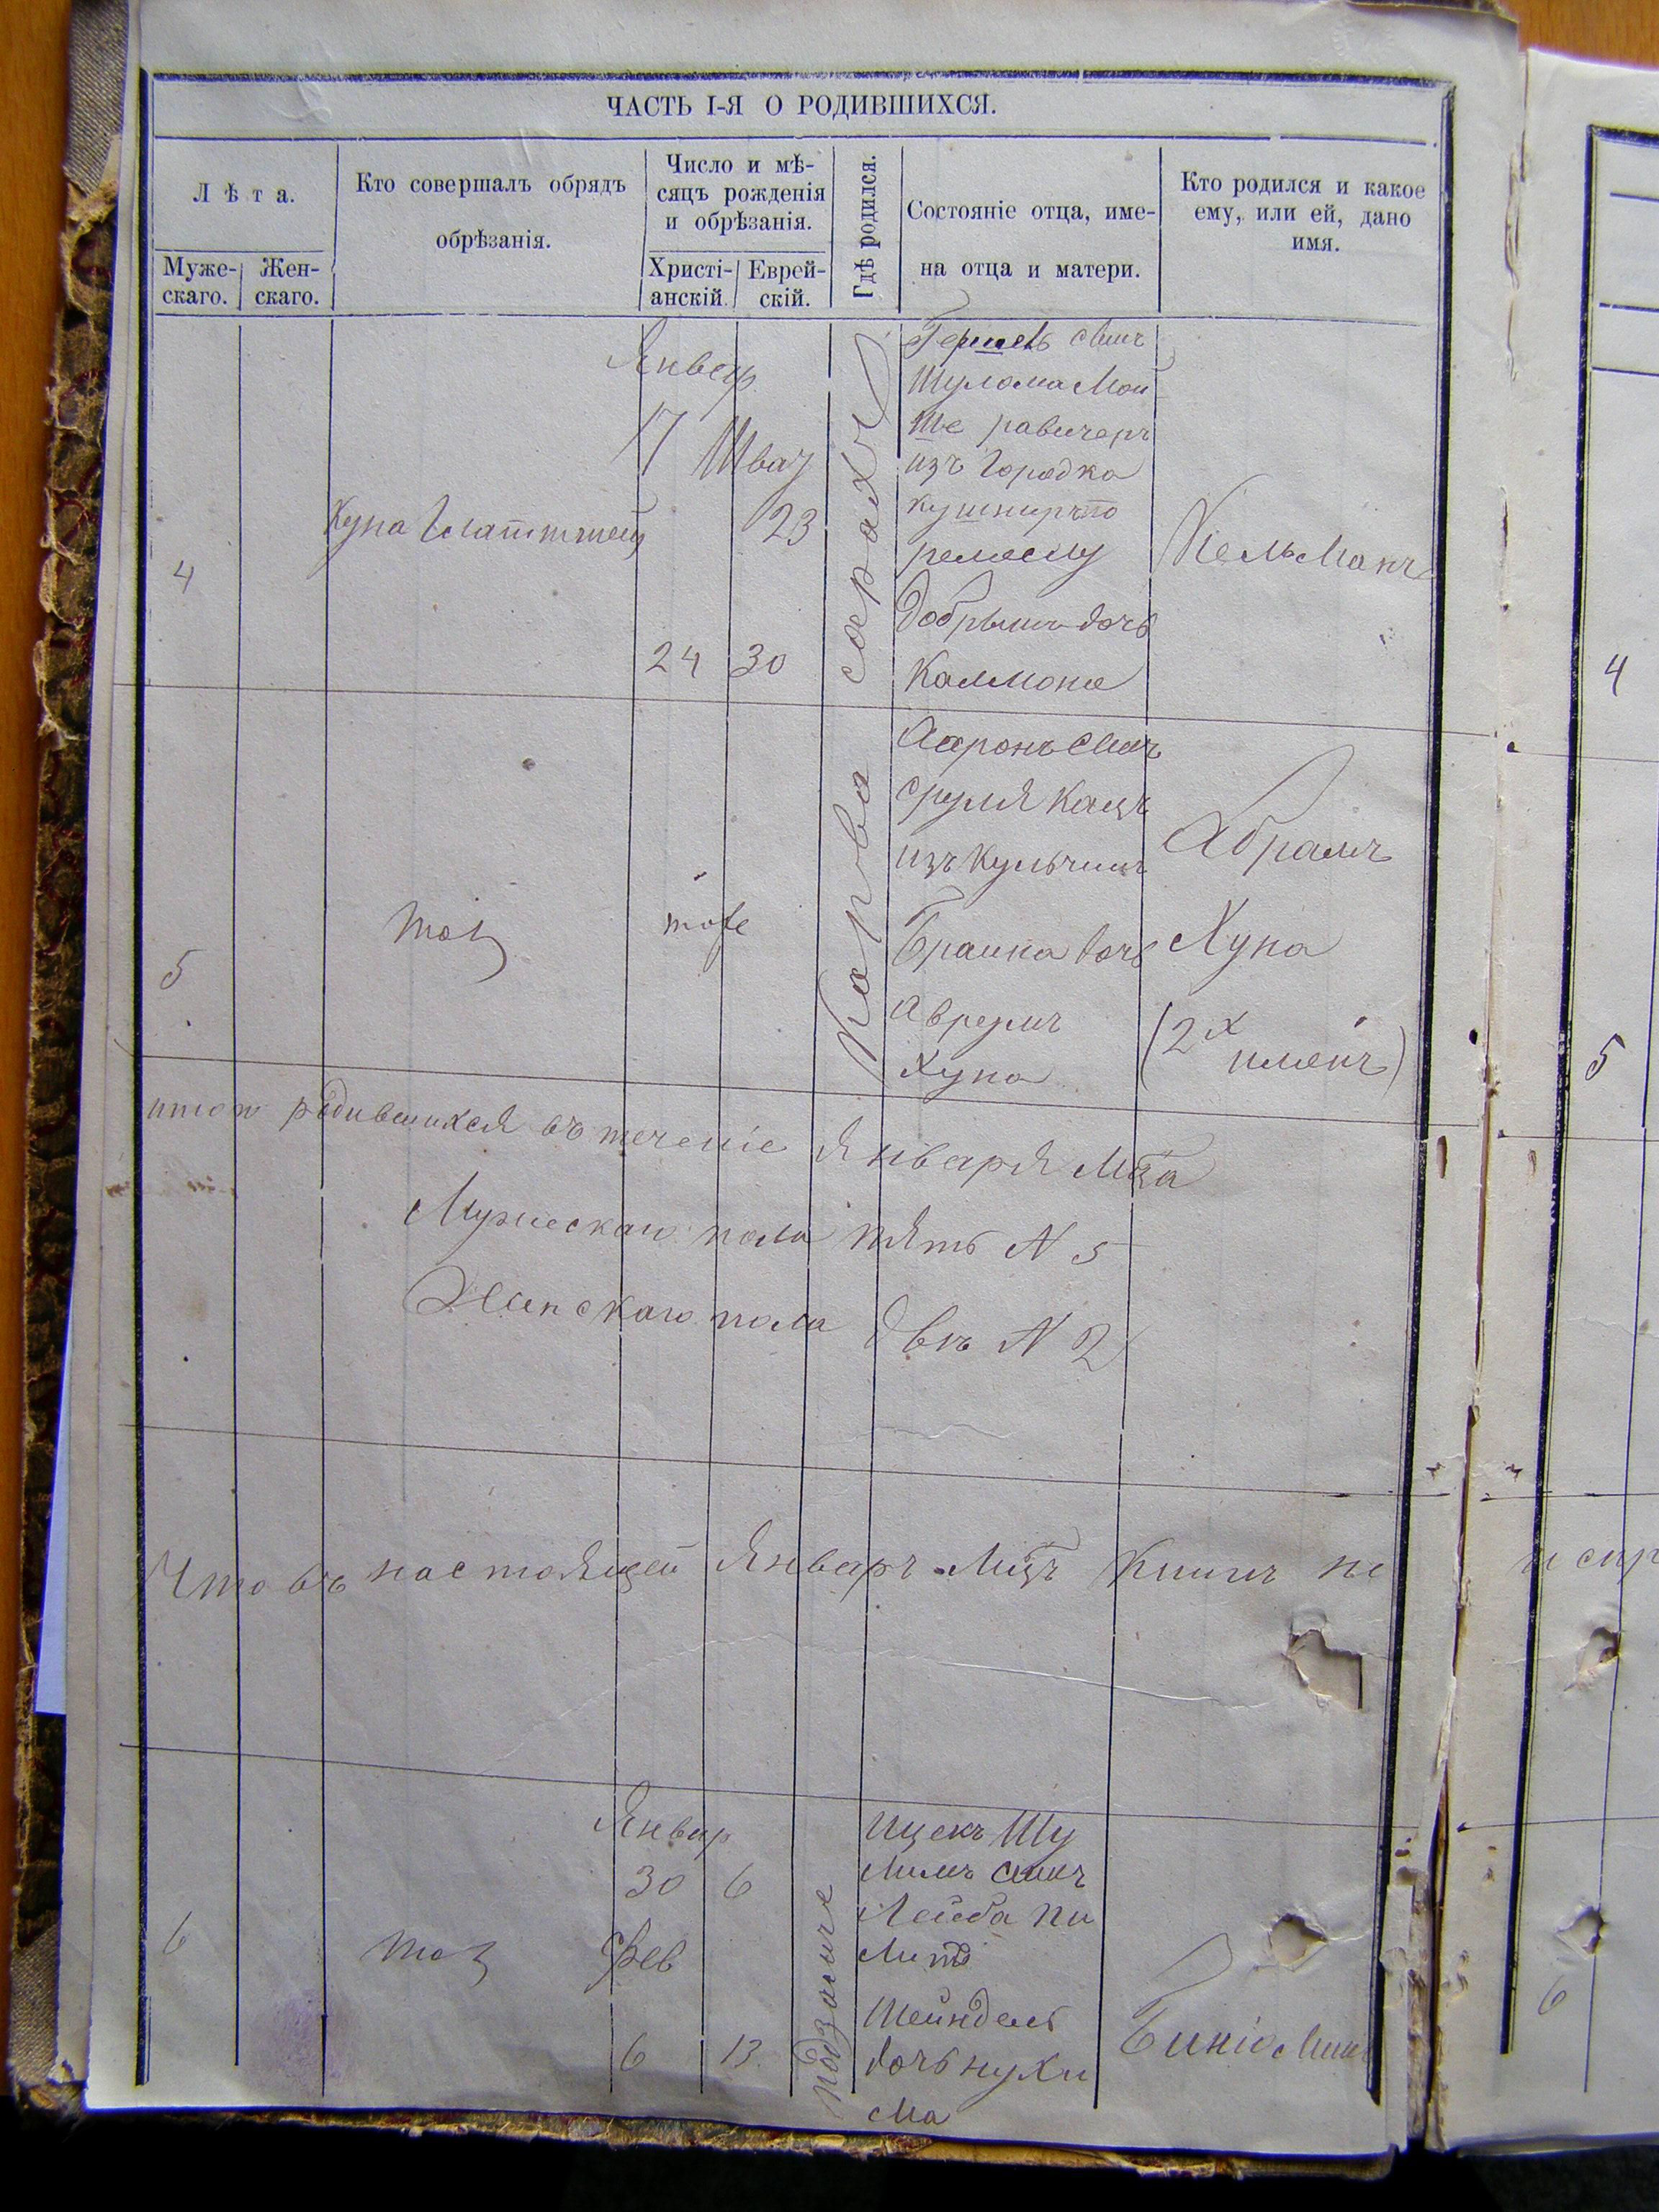 ЧАСТЬ I-Я О РОДИВШИХСЯ.
Лѣта.
Муже-
скаго.
Жен-
скаго.
Кто совершалъ обрядъ
обрѣзанія.
Число и мѣ-
сяцъ рожденія
и обрѣзанія.
Христі-
анскій.
Еврей-
скій.
Гдѣ родился.
Состояніе отца, име-
на отца и матери.
Кто родился и какое
ему, или ей, дано
имя.
4
Январ
17 Шват
23
24 30
Гершель синъ
Шулома Мои
ше равичеръ
изъ Городка
кушниръ по
ремеслу
Добрышъ дочь
Калмона
Кельманъ
5
тоз
тоже
Ааронъ Синъ
сруля Кацъ
изъ Кульчинъ
Браина дочь
Аврумъ
Хуна
Абрамъ
Хуна
(2х
именъ)
итого родившихся въ теченіе Января Мца
Мужескаго пола пять N 5
Женскаго пола двѣ N 2
Что въ настоящей Январъ Мцъ Книгъ не
6
тоз
Январ
30 6
Фев
6 13
Ицекъ Шу
лимъ синъ
Лейба пи
Шейндель
дочь нухи
ма
4
5
6